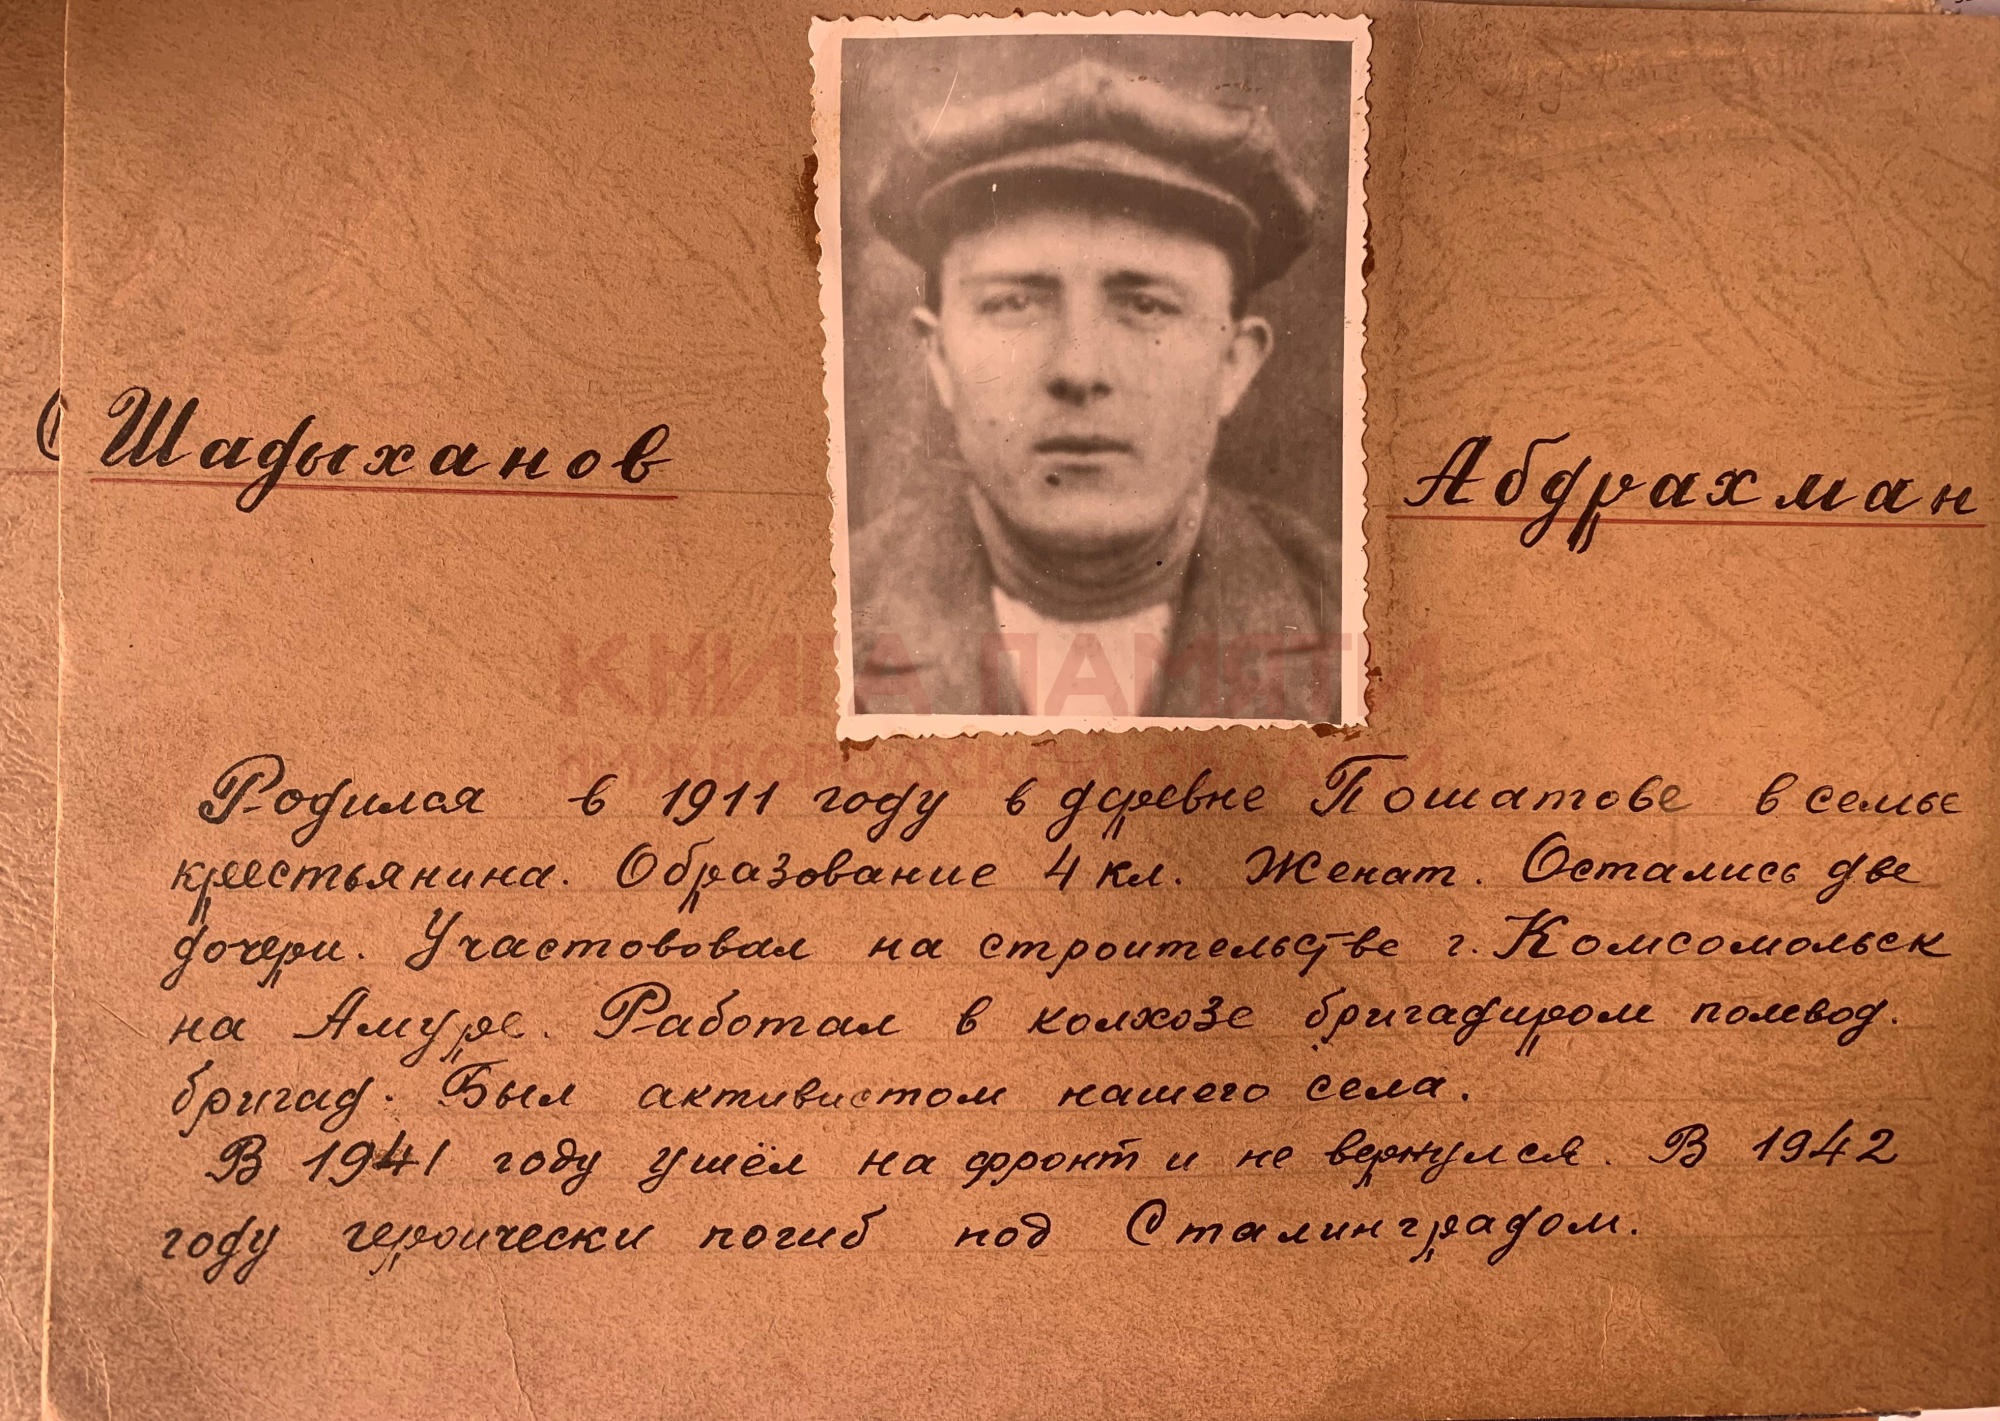 Шадыханов
Абдрахман
КНИГА ПАМЯТИ
НИЖЕГОРОДСКОЙ ОБЛАСТИ
Родился в 1911 году в деревне Пошатове в семье
крестьянина. Образование 4 кл. Женат. Остались две
дочери. Участвовал на строительстве г. Комсомольск
на Амуре. Работал в колхозе бригадиром полевод.
бригад. Был активистом нашего села.
В 1941 году ушёл на фронт и не вернулся. В 1942
году героически погиб под Сталинградом.